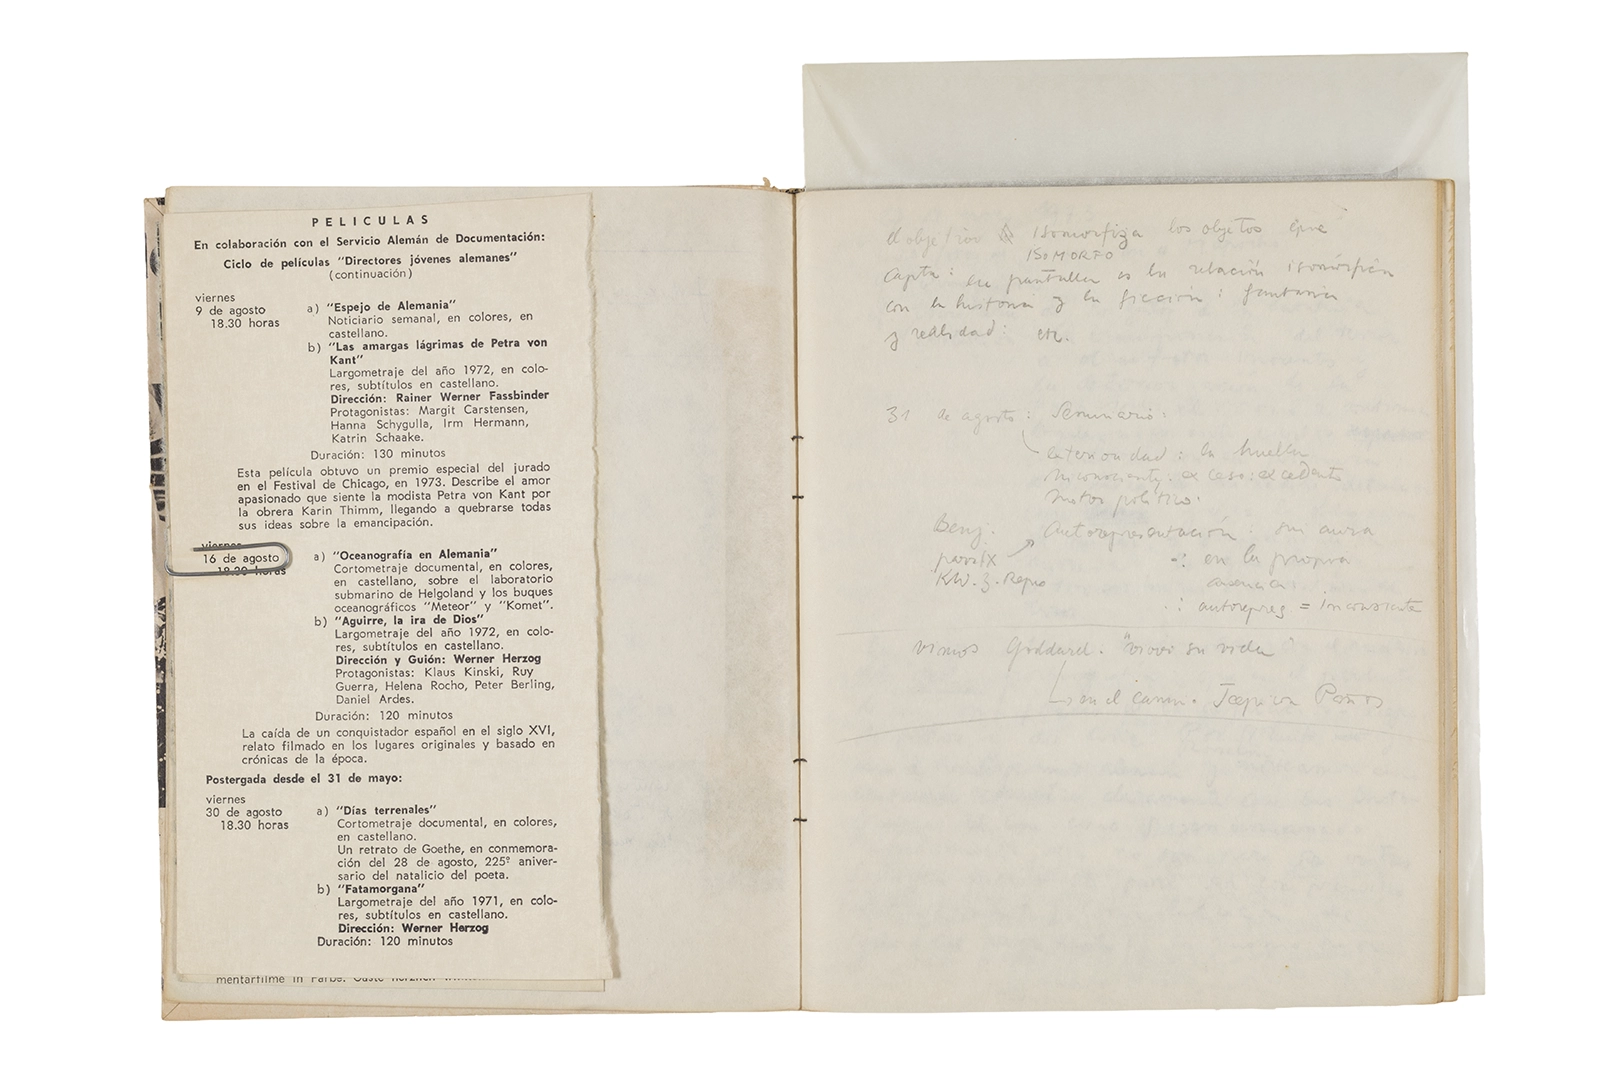 PELICULAS
En colaboración con el Servicio Alemán de Documentación:
Ciclo de películas "Directores jóvenes alemanes"
(continuación)
viernes
9 de agosto
18.30 horas
a) "Espejo de Alemania"
Noticiario semanal, en colores, en
castellano.
b) "Las amargas lágrimas de Petra von
Kant"
Largometraje del año 1972, en colo-
res, subtítulos en castellano.
Dirección: Rainer Werner Fassbinder
Protagonistas: Margit Carstensen,
Hanna Schygulla, Irm Hermann,
Katrin Schaake.
Duración: 130 minutos
Esta película obtuvo un premio especial del jurado
en el Festival de Chicago, en 1973. Describe el amor
apasionado que siente la modista Petra von Kant por
la obrera Karin Thimm, llegando a quebrarse todas
sus ideas sobre la emancipación.
viernes
16 de agosto
18.30 horas
a) "Oceanografía en Alemania"
Cortometraje documental, en colores,
en castellano, sobre el laboratorio
submarino de Helgoland y los buques
oceanográficos "Meteor" y "Komet".
b) "Aguirre, la ira de Dios"
Largometraje del año 1972, en colo-
res, subtítulos en castellano.
Dirección y Guión: Werner Herzog
Protagonistas: Klaus Kinski, Ruy
Guerra, Helena Rocho, Peter Berling,
Daniel Ardes.
Duración: 120 minutos
La caída de un conquistador español en el siglo XVI,
relato filmado en los lugares originales y basado en
crónicas de la época.
Postergada desde el 31 de mayo:
viernes
30 de agosto
18.30 horas
a) "Días terrenales"
Cortometraje documental, en colores,
en castellano.
Un retrato de Goethe, en conmemora-
ción del 28 de agosto, 225º aniver-
sario del natalicio del poeta.
b) "Fatamorgana"
Largometraje del año 1971, en colo-
res, subtítulos en castellano.
Dirección: Werner Herzog
Duración: 120 minutos
mentarfilme in Farbe.
el objetivo isomorfiza los objetos que
ISOMORFO
capta: en pantalla es la relación
con la historia y la ficción: fantasía
y realidad: etc.
31 de agosto: Seminario:
exterioridad: la huella
excedente
motor político.
Benj. Autorepresentación: sin aura
en la propia
ausencia
KW. Z. Repro
: autorepres = inconsciente
vimos Goddard. "vivir su vida
en el